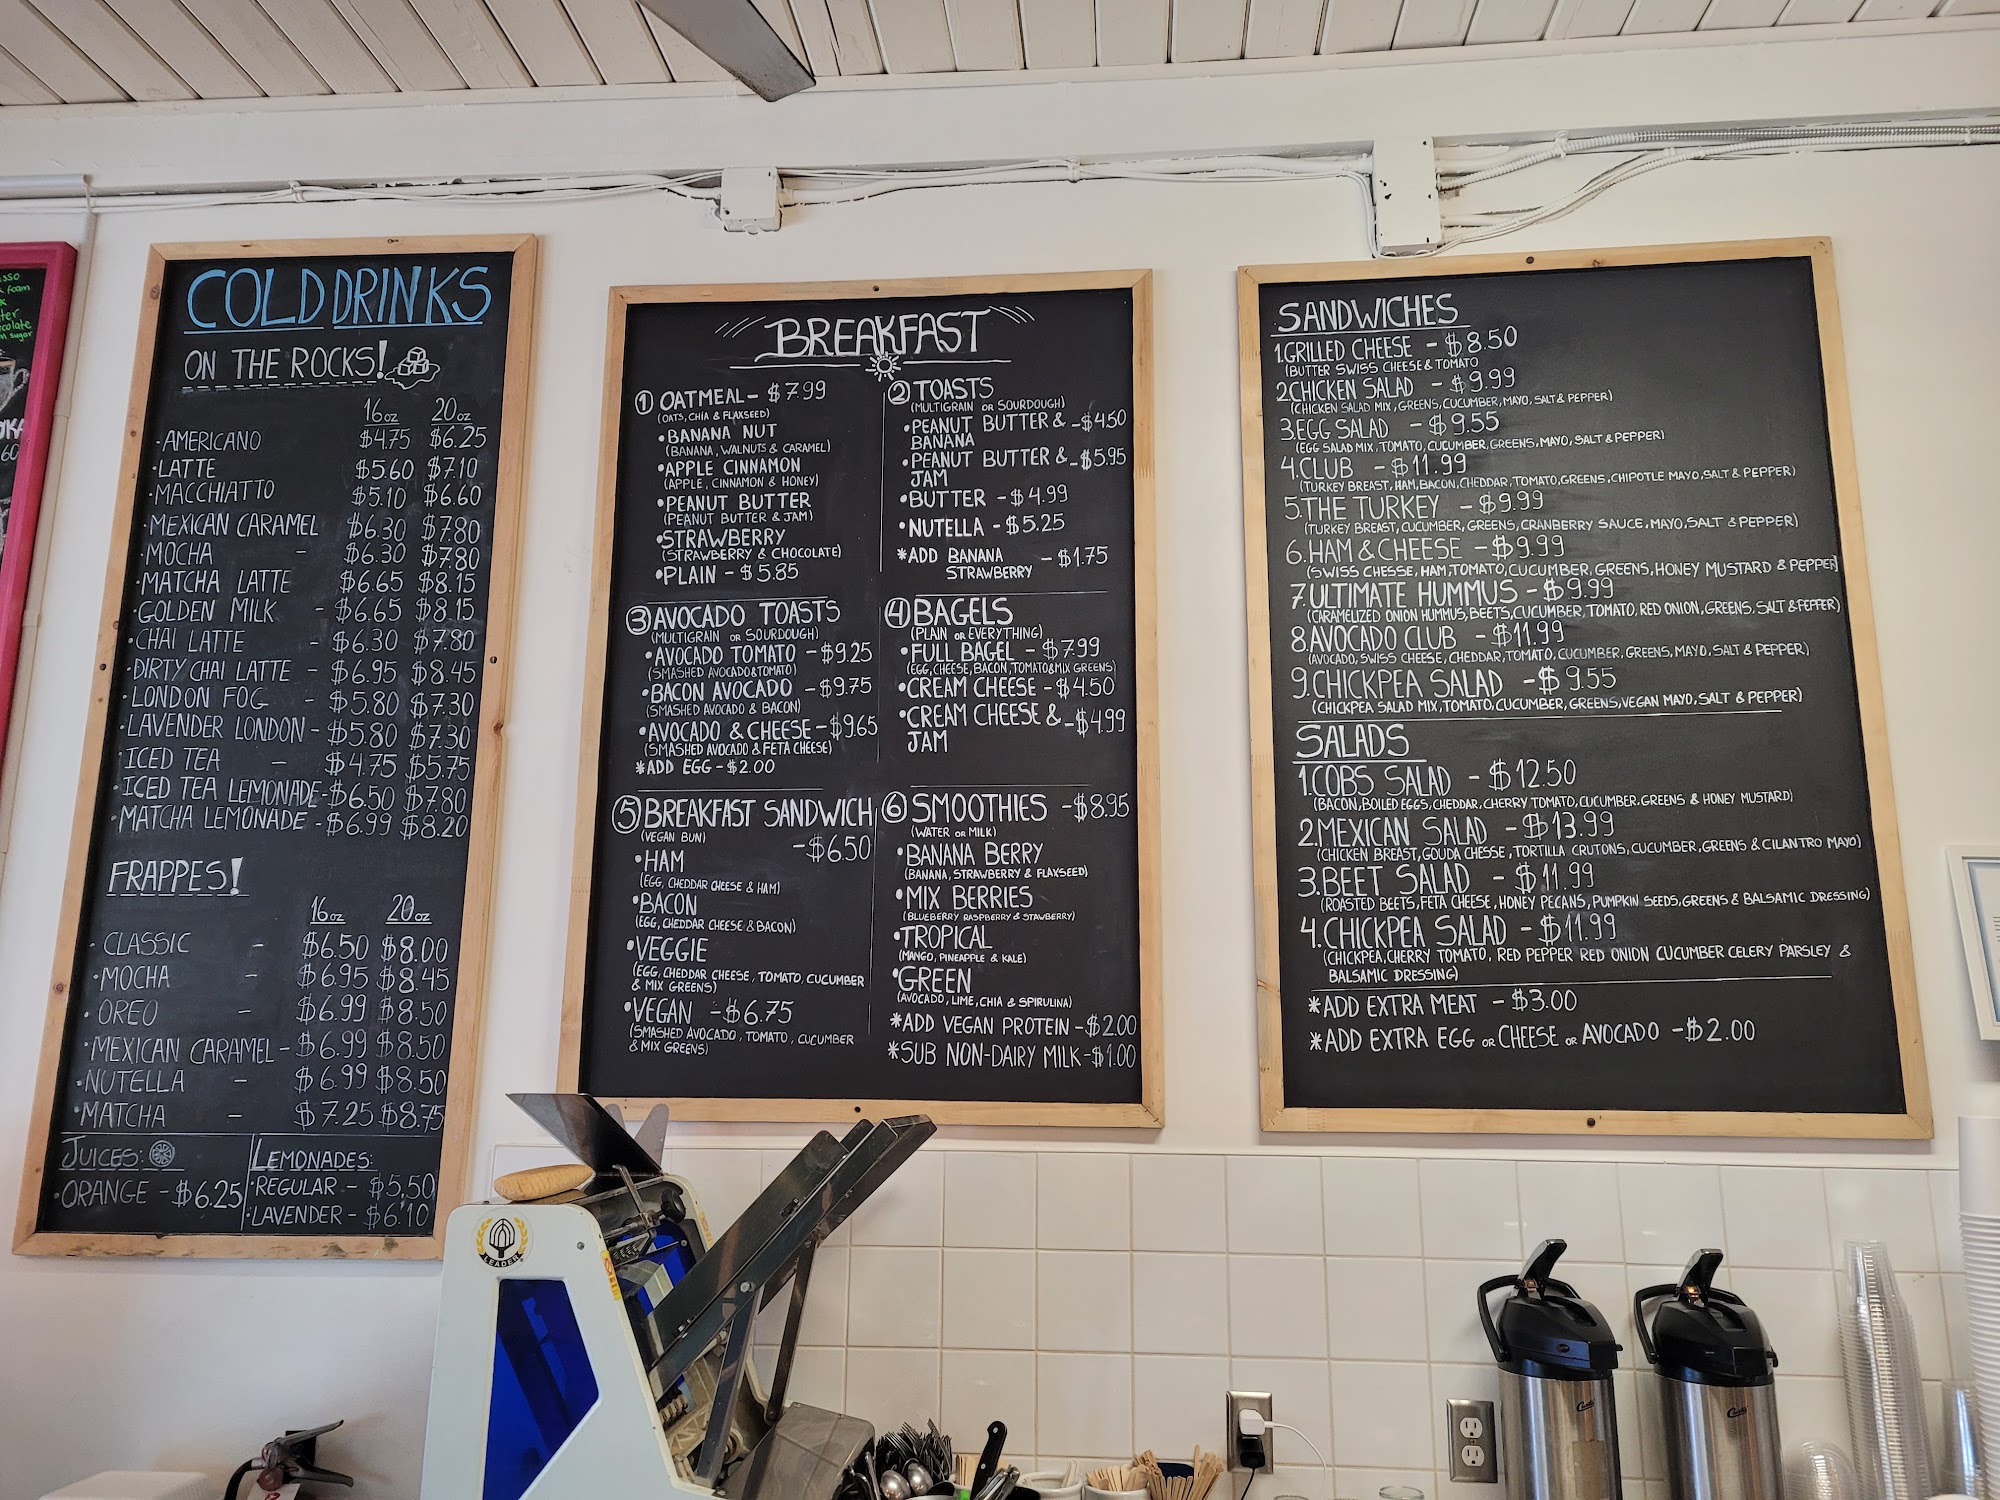 sso
foam
ter
colate
sugar
60
COLD DRINKS
ON THE ROCKS!
16oz 20oz
·AMERICANO $4.75 $6.25
·LATTE $5.60 $7.10
·MACCHIATTO $5.10 $6.60
·MEXICAN CARAMEL $6.30 $7.80
·MOCHA - $6.30 $7.80
·MATCHA LATTE $6.65 $8.15
·GOLDEN MILK - $6.65 $8.15
·CHAI LATTE - $6.30 $7.80
·DIRTY CHAI LATTE - $6.95 $8.45
·LONDON FOG - $5.80 $7.30
·LAVENDER LONDON - $5.80 $7.30
·ICED TEA - $4.75 $5.75
·ICED TEA LEMONADE - $6.50 $7.80
·MATCHA LEMONADE - $6.99 $8.20
FRAPPES!
16oz 20oz
·CLASSIC - $6.50 $8.00
·MOCHA - $6.95 $8.45
·OREO - $6.99 $8.50
·MEXICAN CARAMEL - $6.99 $8.50
·NUTELLA - $6.99 $8.50
·MATCHA - $7.25 $8.75
JUICES:
·ORANGE - $6.25
LEMONADES:
·REGULAR - $5.50
·LAVENDER - $6.10
BREAKFAST
① OATMEAL - $7.99
(OATS, CHIA & FLAXSEED)
•BANANA NUT
(BANANA, WALNUTS & CARAMEL)
•APPLE CINNAMON
(APPLE, CINNAMON & HONEY)
•PEANUT BUTTER
(PEANUT BUTTER & JAM)
•STRAWBERRY
(STRAWBERRY & CHOCOLATE)
•PLAIN - $5.85
② TOASTS
(MULTIGRAIN OR SOURDOUGH)
•PEANUT BUTTER & - $4.50
BANANA
•PEANUT BUTTER & - $5.95
JAM
•BUTTER - $4.99
•NUTELLA - $5.25
*ADD BANANA - $1.75
STRAWBERRY
③ AVOCADO TOASTS
(MULTIGRAIN OR SOURDOUGH)
•AVOCADO TOMATO - $9.25
(SMASHED AVOCADO & TOMATO)
•BACON AVOCADO - $9.75
(SMASHED AVOCADO & BACON)
•AVOCADO & CHEESE - $9.65
(SMASHED AVOCADO & FETA CHEESE)
*ADD EGG - $2.00
④ BAGELS
(PLAIN OR EVERYTHING)
•FULL BAGEL - $7.99
(EGG, CHEESE, BACON, TOMATO & MIX GREENS)
•CREAM CHEESE - $4.50
•CREAM CHEESE & - $4.99
JAM
⑤ BREAKFAST SANDWICH
(VEGAN BUN) - $6.50
•HAM
(EGG, CHEDDAR CHEESE & HAM)
•BACON
(EGG, CHEDDAR CHEESE & BACON)
•VEGGIE
(EGG, CHEDDAR CHEESE, TOMATO, CUCUMBER
& MIX GREENS)
•VEGAN - $6.75
(SMASHED AVOCADO, TOMATO, CUCUMBER
& MIX GREENS)
⑥ SMOOTHIES - $8.95
(WATER OR MILK)
•BANANA BERRY
(BANANA, STRAWBERRY & FLAXSEED)
•MIX BERRIES
(BLUEBERRY RASPBERRY & STAWBERRY)
•TROPICAL
(MANGO, PINEAPPLE & KALE)
•GREEN
(AVOCADO, LIME, CHIA & SPIRULINA)
*ADD VEGAN PROTEIN - $2.00
*SUB NON-DAIRY MILK - $1.00
SANDWICHES
1.GRILLED CHEESE - $8.50
(BUTTER SWISS CHEESE & TOMATO
2.CHICKEN SALAD - $9.99
(CHICKEN SALAD MIX, GREENS, CUCUMBER, MAYO, SALT & PEPPER)
3.EGG SALAD - $9.55
(EGG SALAD MIX, TOMATO, CUCUMBER, GREENS, MAYO, SALT & PEPPER)
4.CLUB - $11.99
(TURKEY BREAST, HAM, BACON, CHEDDAR, TOMATO, GREENS, CHIPOTLE MAYO, SALT & PEPPER)
5.THE TURKEY - $9.99
(TURKEY BREAST, CUCUMBER, GREENS, CRANBERRY SAUCE, MAYO, SALT & PEPPER)
6.HAM & CHEESE - $9.99
(SWISS CHESSE, HAM, TOMATO, CUCUMBER, GREENS, HONEY MUSTARD & PEPPER)
7.ULTIMATE HUMMUS - $9.99
(CARAMELIZED ONION HUMMUS, BEETS, CUCUMBER, TOMATO, RED ONION, GREENS, SALT & PEPPER)
8.AVOCADO CLUB - $11.99
(AVOCADO, SWISS CHEESE, CHEDDAR, TOMATO, CUCUMBER, GREENS, MAYO, SALT & PEPPER)
9.CHICKPEA SALAD - $9.55
(CHICKPEA SALAD MIX, TOMATO, CUCUMBER, GREENS, VEGAN MAYO, SALT & PEPPER)
SALADS
1.COBS SALAD - $12.50
(BACON, BOILED EGGS, CHEDDAR, CHERRY TOMATO, CUCUMBER, GREENS & HONEY MUSTARD)
2.MEXICAN SALAD - $13.99
(CHICKEN BREAST, GOUDA CHESSE, TORTILLA CRUTONS, CUCUMBER, GREENS & CILANTRO MAYO)
3.BEET SALAD - $11.99
(ROASTED BEETS, FETA CHEESE, HONEY PECANS, PUMPKIN SEEDS, GREENS & BALSAMIC DRESSING)
4.CHICKPEA SALAD - $11.99
(CHICKPEA, CHERRY TOMATO, RED PEPPER RED ONION CUCUMBER CELERY PARSLEY &
BALSAMIC DRESSING)
*ADD EXTRA MEAT - $3.00
*ADD EXTRA EGG OR CHEESE OR AVOCADO - $2.00
LEADER
Curtis
Curtis